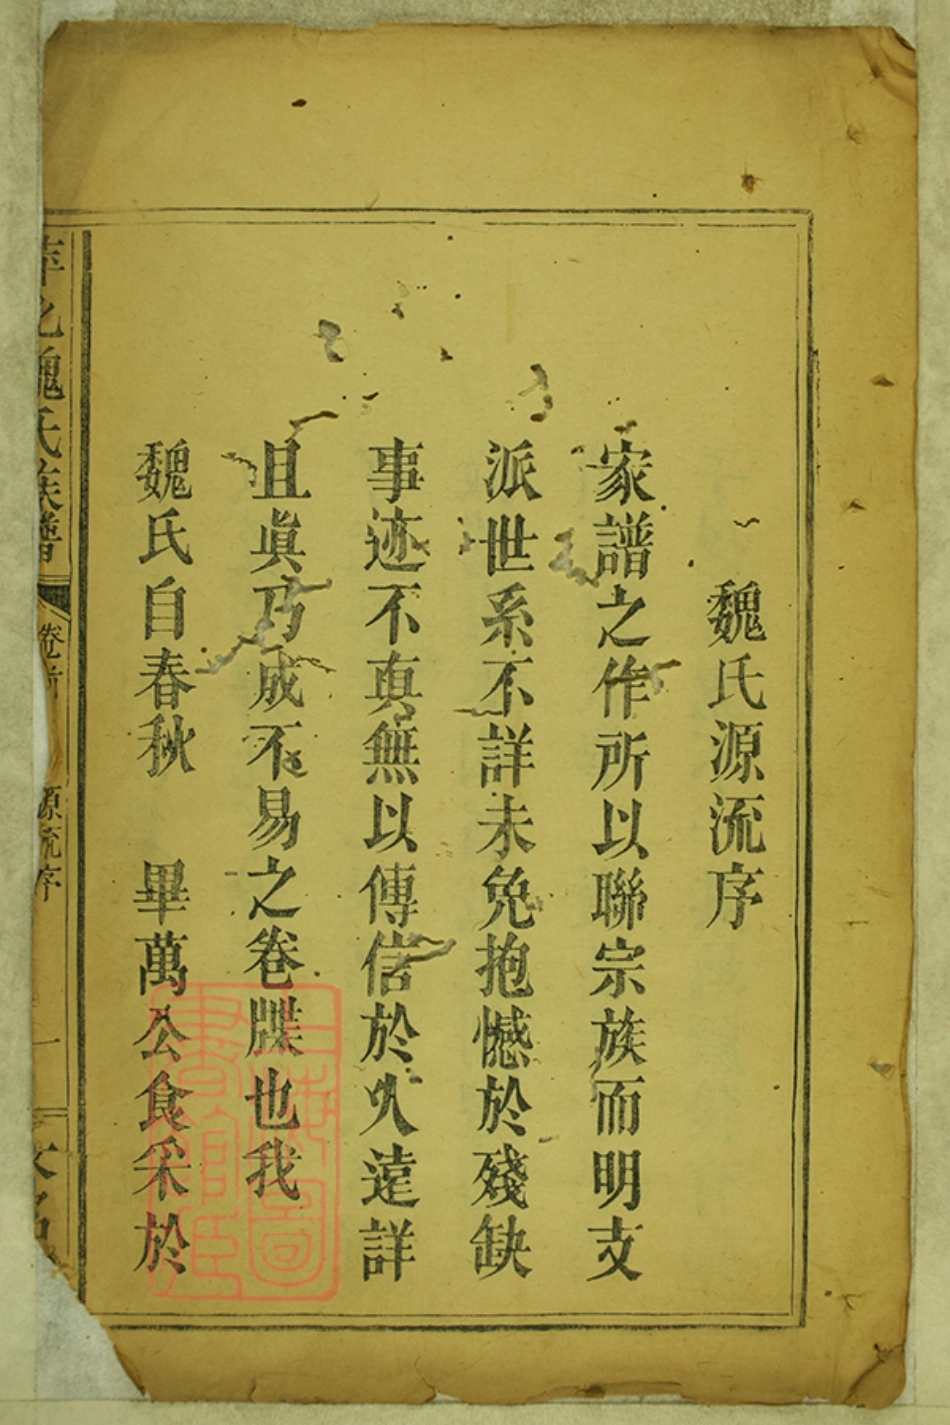 魏氏源流序
家譜之作所以聯宗族而明支
派世系不詳未免抱憾於殘缺
事迹不真無以傳信於久遠詳
且眞乃成不易之卷牒也我
魏氏自春秋 畢萬公食采於
魏氏族譜
卷首
源流序
一
上海圖書館藏